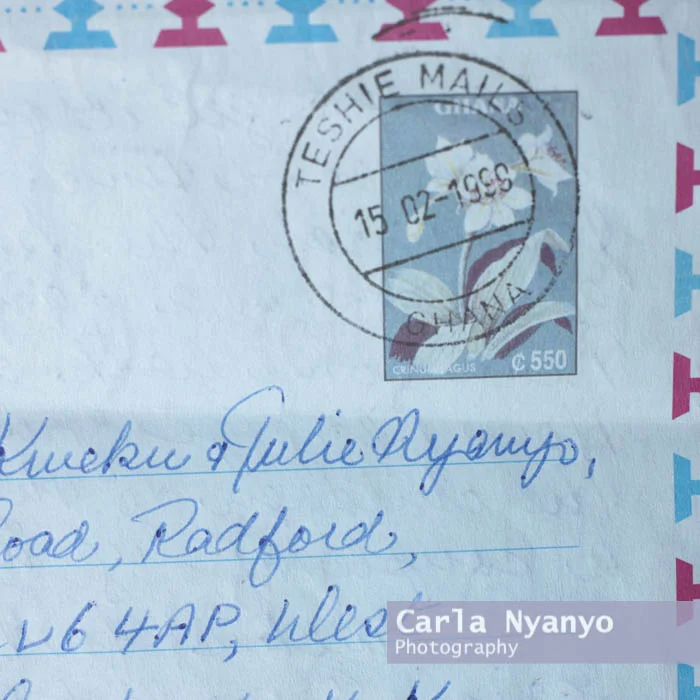 TESHIE MAILS
GHANA
15 02-1999
GHANA
CRINUM LAGUS
₵ 550
Kweku & Julie Nyanyo,
Road, Radford,
CV6 4AP, West
Carla Nyanyo
Photography